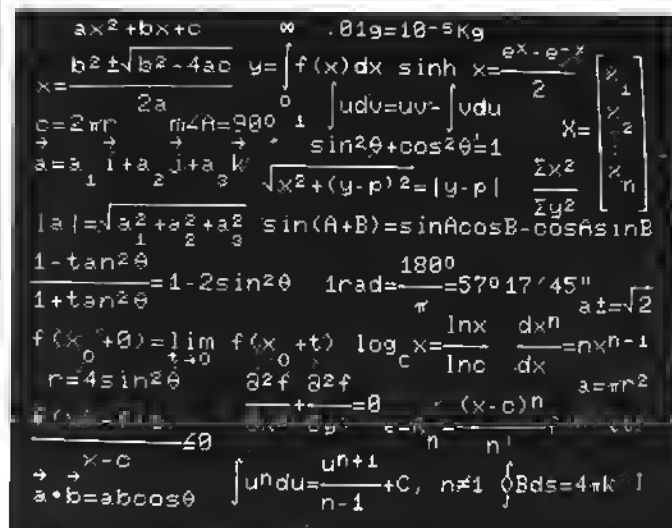 ax²+bx+c ∞ .01g=10⁻⁵Kg
x=(b²±√(b²-4ac))/2a y=∫₀f(x)dx sinh x=(eˣ-e⁻ˣ)/2
∫udv=uv-∫vdu
c=2πr m∠A=90º
sin²θ+cos²θ=1 X=[x₁ x₂ ⋮ xₙ]
a⃗=a₁i⃗+a₂j⃗+a₃k⃗
√(x²+(y-p)²)=|y-p| Σx²/Σy²
|a|=√(a₁²+a₂²+a₃²) sin(A+B)=sinAcosB-cosAsinB
(1-tan²θ)/(1+tan²θ)=1-2sin²θ 1rad=180º/π=57º17′45″
a±=√2
f(x₀+0)=lim t→0 f(x₀+t) log_c x=lnx/lnc dxⁿ/dx=nxⁿ⁻¹
r=4sin²θ ∂²f+∂²f=0 a=πr²
(x-c)ⁿ/n!
x-c ≤0
a⃗•b⃗=abcosθ ∫uⁿdu=uⁿ⁺¹/(n-1)+C, n≠1 ∮Bds=4πk I